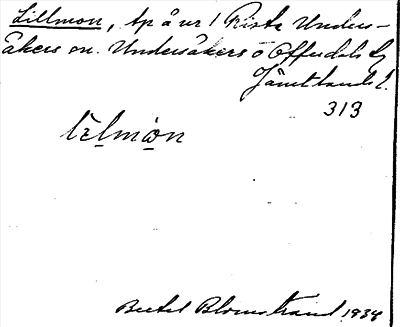 Lillmon, tp å nr 1 Rista Unders-
åkers sn. Undersåkers o Offerdals tg
Jämtlands l.
313
lɪlmòn
Bertel Blomstrand 1934